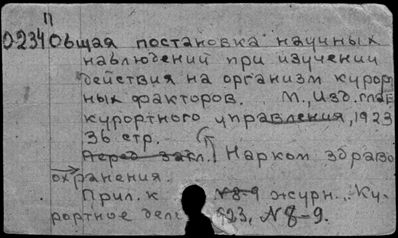 П
0234 Общая постановка научных
наблюдений при изучении
действия на организм курорт
ных факторов. М., Изд. глав
курортного управления, 1923
36 стр.
Перед загл.: Нарком здраво
охранения.
Прил. к №8-9 журн. "Ку-
рортное дело 1923, №8-9.